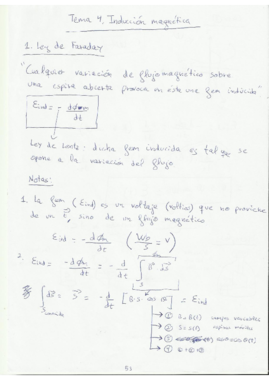 Tema 4. Inducción magnética
1. Ley de Faraday
"Cualquier variación de flujo magnético sobre
una espira abierta provoca en esta una fem inducida"
Eind = - dΦm/dt
Ley de Lenz: dicha fem inducida es tal que se
opone a la variación del flujo
Notas:
1. La fem (Eind) es un voltaje (voltios) que no proviene
de un , sino de un flujo magnético
Eind = - dΦm/dt (Wb/s = V)
2. Eind = - dΦm/dt = - d/dt ∫ B⃗ · dS⃗
∫ dS⃗ = S⃗ = - d/dt [B·S·cos θ] = Eind
① campos variables
② S = S(t) espiras
③
④